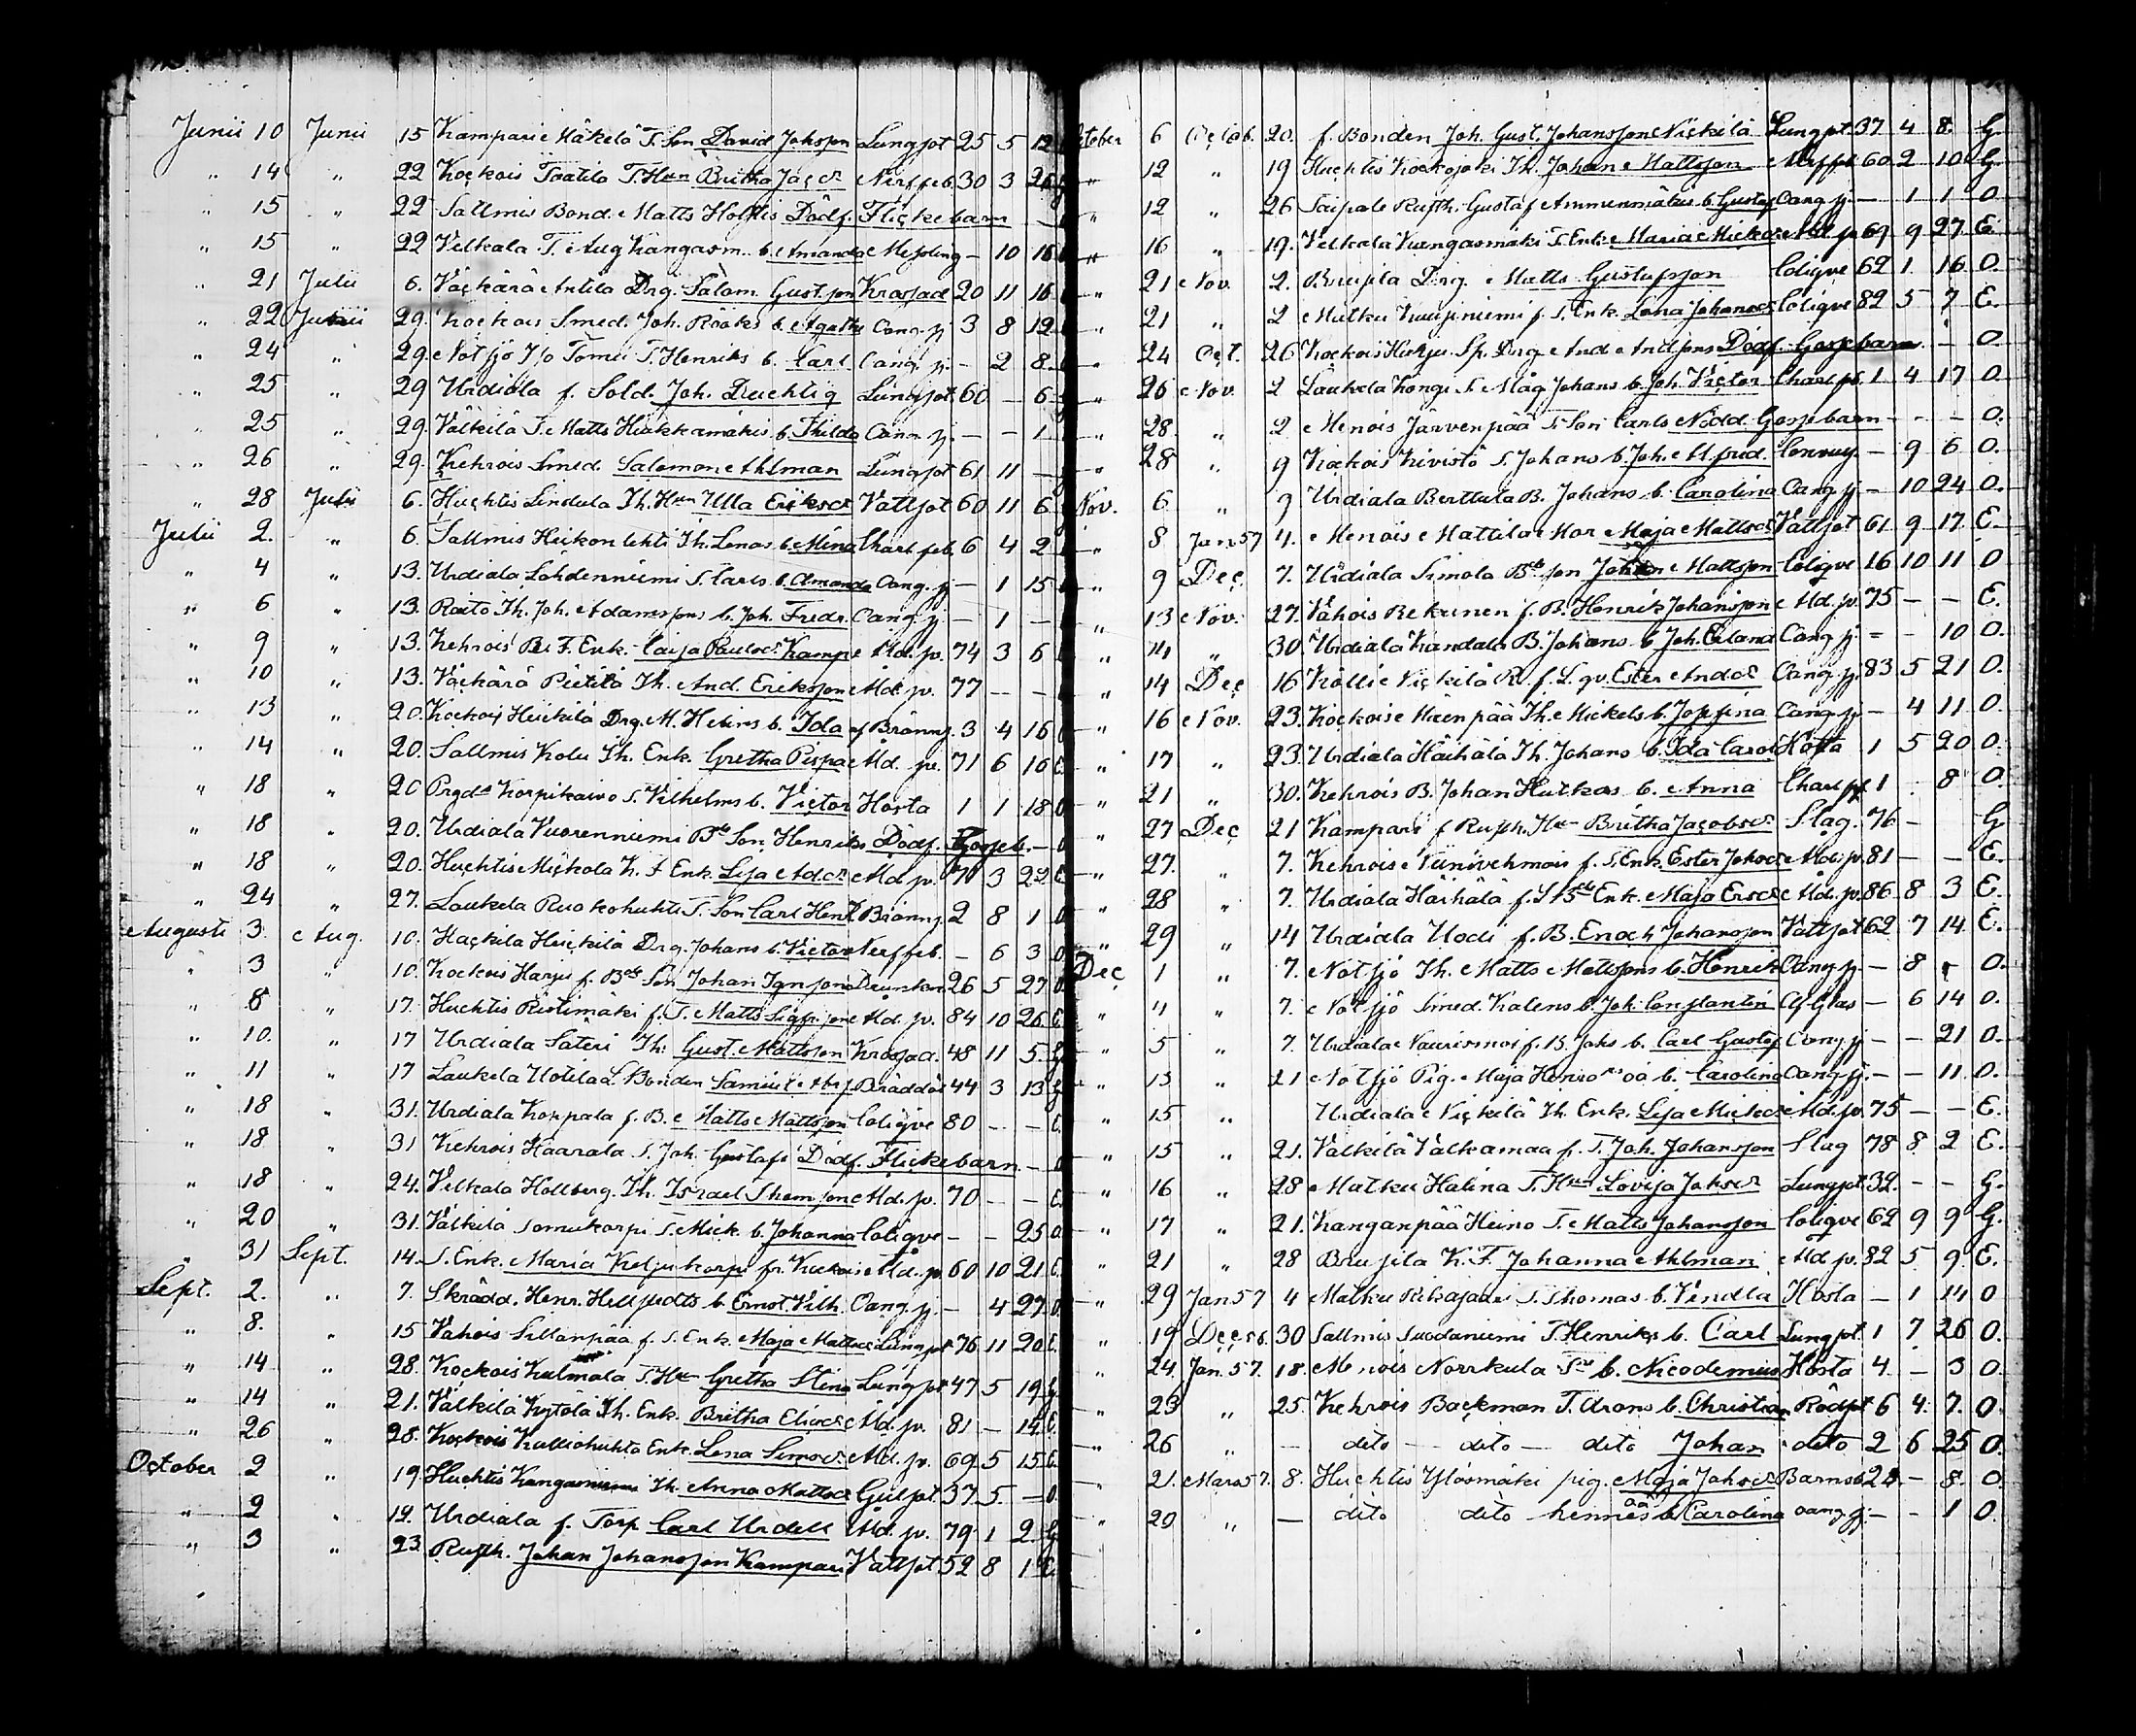 Junii 10 Junii 15 Kampari Mäkelä T. Son David Johsson Lungsot 25 5 12
" 14 " 22 Kockois Taatila T. Hu Britha Jacdr Nerffeb. 30 3 26
" 15 " 22 Sallmis Bond. Matts Holttis Dödf. Flickebarn
" 15 " 22 Velkala T. Aug Kangasm. b. Amanda Messling — 10 16
" 21 Julii 6. Väckärä Antila Drg. Salom. Gust.son Krassad 20 11 16
" 22 29. Kockois Smed. Joh. Rööks b. Agatha Oang. sj. 3 8 12
" 24 " 29. Notsjö Tomei T. Henriks b. Carl Oang. sj. — 2 8
" 25 " 29 Urdiala f. Sold. Joh. Duchtig Lungsot 60 — 6
" 25 " 29. Välkilä T. Matts b. Thilda Oang. sj. — — 1
" 26 " 29. Kehrois Smed. Salomon Ahlman Lungsot 61 11 —
" 28 Julii 6. Huchtis Lindula Th. Hu Ulla Ericsdr Vattsot 60 11 6
Julii 2. " 6. Sallmis Heikon lehti Th. Lenas b. Mina Charl feb. 6 4 2
" 4 " 13. Urdiala Lähdenniemi S. Carls b. Amanda Oang. sj — 1 15
" 6 " 13. Raitö Th. Joh. Adamssons b. Joh. Fredr. Oang. sj — 1 —
" 9 " 13. Kehrois Enk. Caisa Paulsdr Kamp Åld. sv. 74 3 6
" 10 " 13. Väckärä Pietilä Th. And. Eriksson Åld. sv. 77 — —
" 13 " 20. Kockois Heikilä Drg. M. Helins b. Ida af Bränns. 3 4 16
" 14 " 20. Sallmis Kolu Th. Enk. Gretha Pispa Åld. sv. 71 6 16
" 18 " 20 Prgds Korpikaivo S. Vilhelms b. Victor Hosta 1 1 18
" 18 " 20. Urdiala Vuorenniemi Bds Son Henriks Dödf. Gosseb. —
" 18 " 20. Huchtis Mickola Enk. Lisa Ad.dr Åld. sv. 71 3 22
" 24 " 27. Laukela Ruokohuhti T. Son Carl Henr. Bränns. 2 8 1
Augusti 3. Aug. 10. Hackila Heickilä Drg. Johans b. Victor Nerffeb. — 6 3
" 3 " 10. Kockois Harju f. Bds Son Johan Ignsson Drunkn. 26 5 27
" 8 " 17. Huchtis Ristimäki f. T. Matts Sigfr.son Åld. sv. 84 10 26
" 10. " 17 Urdiala Säteri Th. Gust. Mattsson Krassad. 48 11 5
" 11 " 17 Laukela Uotila Bonden Samuel Bråddöd 44 3 13
" 18 " 31. Urdiala Koppala f. B. Matts Mattsson Colique 80 — —
" 18 " 31 Kehrois Haarala S. Joh. Gustafs Dödf. Flickebarn —
" 18 " 24. Velkala Hollberg. Th. Israel Åld. sv. 70 — —
" 20 " 31. Välkilä Somukorpi S. Mick. b. Johanna Colique — — 25
" 31 Sept. 14. S. Enk. Maria Keljukorpi fr. Kockois Åld. sv 60 10 21
Sept. 2. " 7. Skrädd. Henr. Hellstedts b. Ernst. Vilh. Oang. sj — 4 27
" 8. " 15 Vahois Sillanpää f. S. Enk. Maja Mattsdr Lungsot 76 11 20
" 14 " 28. Kockois Kulmala T. Hu Gretha Stina Lungsot 47 5 19
" 14 " 21. Välkilä Kytölä Th. Enk. Britha Eliasdr Åld. sv. 81 — 14
" 26 " 28. Kockois Kalliohuhta Enk. Lena Simsdr Åld. sv. 69 5 15
October 2 " 19 Huchtis Kangasniemi Th. Anna Mattsdr Gulsot. 37 5 —
" 2 " 12. Urdiala f. Torp Carl Urdell Åld. sv. 79 1 2
" 3 " 23. Rusth. Johan Johansson Kampari Vattsot 52 8 1
October 6 Octob. 20. f. Bonden Joh. Gust. Johansson Nickilä Lungsot 37 4 8. G.
" 12 " 19 Huchtis Kockojoki Th. Johan Mattsson 60 2 10 G.
" 12 " 26 Saipale Rusth. Gustaf Ammenmäkis b. Gustaf Oang. sj — 1 1 O
" 16 " 19. Velkala Kangasmäki S. Enk. Maria Mickdr Åld. sv 69 9 27 E.
" 21 Nov. 2. Brusila Drg. Matts Gustafsson Colique 62 1 16 O.
" 21 " 2 Matku f. S. Enk. Lena Johansdr Colique 82 5 7 E.
" 24 Oct. 26 Kockois Sp. Drg And. Andsons Dödf. Gossebarn — O
" 26 Nov. 2 Laukela Kongi S. Måg Johans b. Joh. Victor Charl.feb. 1 4 17 O.
" 28 " 2 Menois Järvenpää T. Son Carls Nödd. Gossebarn — — — O.
" 28 " 9 Kockois Kivistö S. Johans b. Joh. Alfred. Convuls. — 9 6 O.
Nov. 6 " 9 Urdiala Berttula B. Johans b. Carolina Oang. sj — 10 24 O.
" 8 Jan 57 4. Menois Mattila Mor Maja Mattsdr Vattsot 61 9 17 E.
" 9 Dec. 7. Urdiala Simola Bds son Johan Mattsson Colique 16 10 11 O
" 13 Nov. 27. Vahois Rekunen f. B. Henrik Johansson Åld. sv. 75 — — E.
" 11 " 30 Urdiala Kandala B. Johans b. Joh. Erland Oang. sj — — 10 O.
" 14 Dec 16 Kölli Nickilä R. f. L. qv. Ester Andsdr Oang. sj. 83 5 21 O.
" 16 Nov. 23. Kockois Mäenpää Th. Mickels b. Josefina Oang. sj — 4 11 O.
" 17 " 23. Urdiala Häihälä Th. Johans b. Ida Carol. Hosta 1 5 20 O.
" 21 " 30. Kehrois B. Johan Hutkas b. Anna Charl.feb 1 . 8 O.
" 27 Dec 21 Kampari f Rusth. Hu Britha Jacobsdr Slag. 76 — G
" 27. " 7. Kehrois Niinivehmais f. S. Enk. Ester Johsdr Åld. sv. 81 — — E.
" 28 " 7. Urdiala Häihälä f. Enk. Maja Ersdr Åld. sv. 86 8 3 E.
" 29 " 14 Urdiala Uodi f. B. Enoch Johansson Vattsot 62 7 14 E.
Dec 1 " 7. Notsjö Th. Matts Mattssons b. Henrik Oang. sj — 8 O.
" 4 " 7. Notsjö Smed. Kalens b. Joh. Constantin — 6 14 O.
" 5 " 7. Urdiala Naurismoi f. B. Johs b. Carl Gustaf Oang. sj — — 21 O.
" 13 " 21 Notsjö Pig. Maja Henrsdr oä b. Carolina Oang. sj. — — 11 O.
" 15 " Urdiala Nickilä Th. Enk. Lisa Mickdr Åld. sv. 75 — — E.
" 15 " 21. Välkilä Välkamaa f. T. Joh. Johansson Slag 78 8 2 E.
" 16 " 28 Matku Halina T. Hu Lovisa Johsdr Lungsot 32. — — G.
" 17 " 21. Kanganpää Heino T. Matts Johansson Colique 62 9 9 G.
" 21 " 28 Brusila K. F. Johanna Ahlman Åld. sv. 82 5 9. E.
" 29 Jan 57 4 Matku S. Thomas b. Vendla Hosta — 1 14 O
" 19 Dec 56. 30 Sallmis Suodaniemi T. Henriks b. Carl Lungsot. 1 7 26 O.
" 24 Jan 57. 18. Menois Norrkula b. Nicodemus Hosta 4 — 3 O
" 23 " 25. Kehrois Backman T. Arons b. Christian Rödsot 6 4 7. O.
" 26 " — dito — dito — dito Johan dito 2 6 25 O.
" 21. Mars 57. 8. Huchtis Ylösmäki pig. Maja Johsdr Barnsb 28 — 8. O.
" 20 " — dito dito hennes oä b. Carolina oang. sj. — — 1 O.